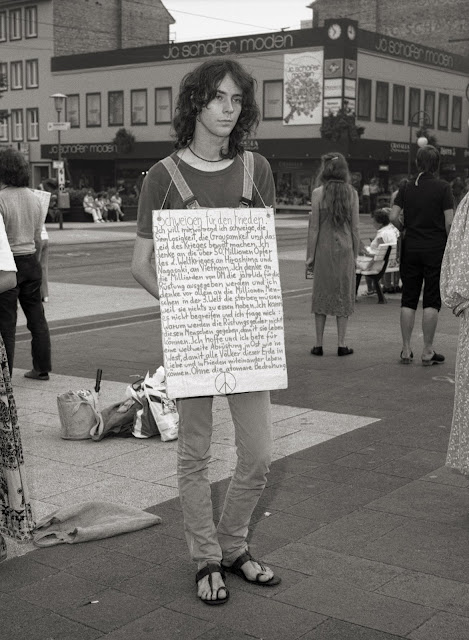 jc schäfer moden
jc schäfer moden
schweigen für den frieden
Ich will mir während ich schweige, die
Sinnlosigkeit, die Grausamkeit und das
Leid des Krieges bewußt machen. Ich
denke an die über 50 Millionen Opfer
des 2. Weltkrieges an Hiroshima und
Nagasaki an Vietnam. Ich denke an
die Milliarden von DM die jährlich für die
Rüstung ausgegeben werden und ich
denke vor allem an die Millionen Men-
schen in der 3. Welt die sterben müssen
weil sie nichts zu essen haben. Ich kann
es nicht begreifen und ich frage mich:
Warum werden die Rüstungsgelder nicht
diesen Menschen gegeben, damit sie leben
können. Ich hoffe und ich bete für
eine weltweite Abrüstung in Ost und
West, damit alle Völker dieser Erde in
Liebe und in Frieden miteinander leben
können. Ohne die atomare Bedrohung